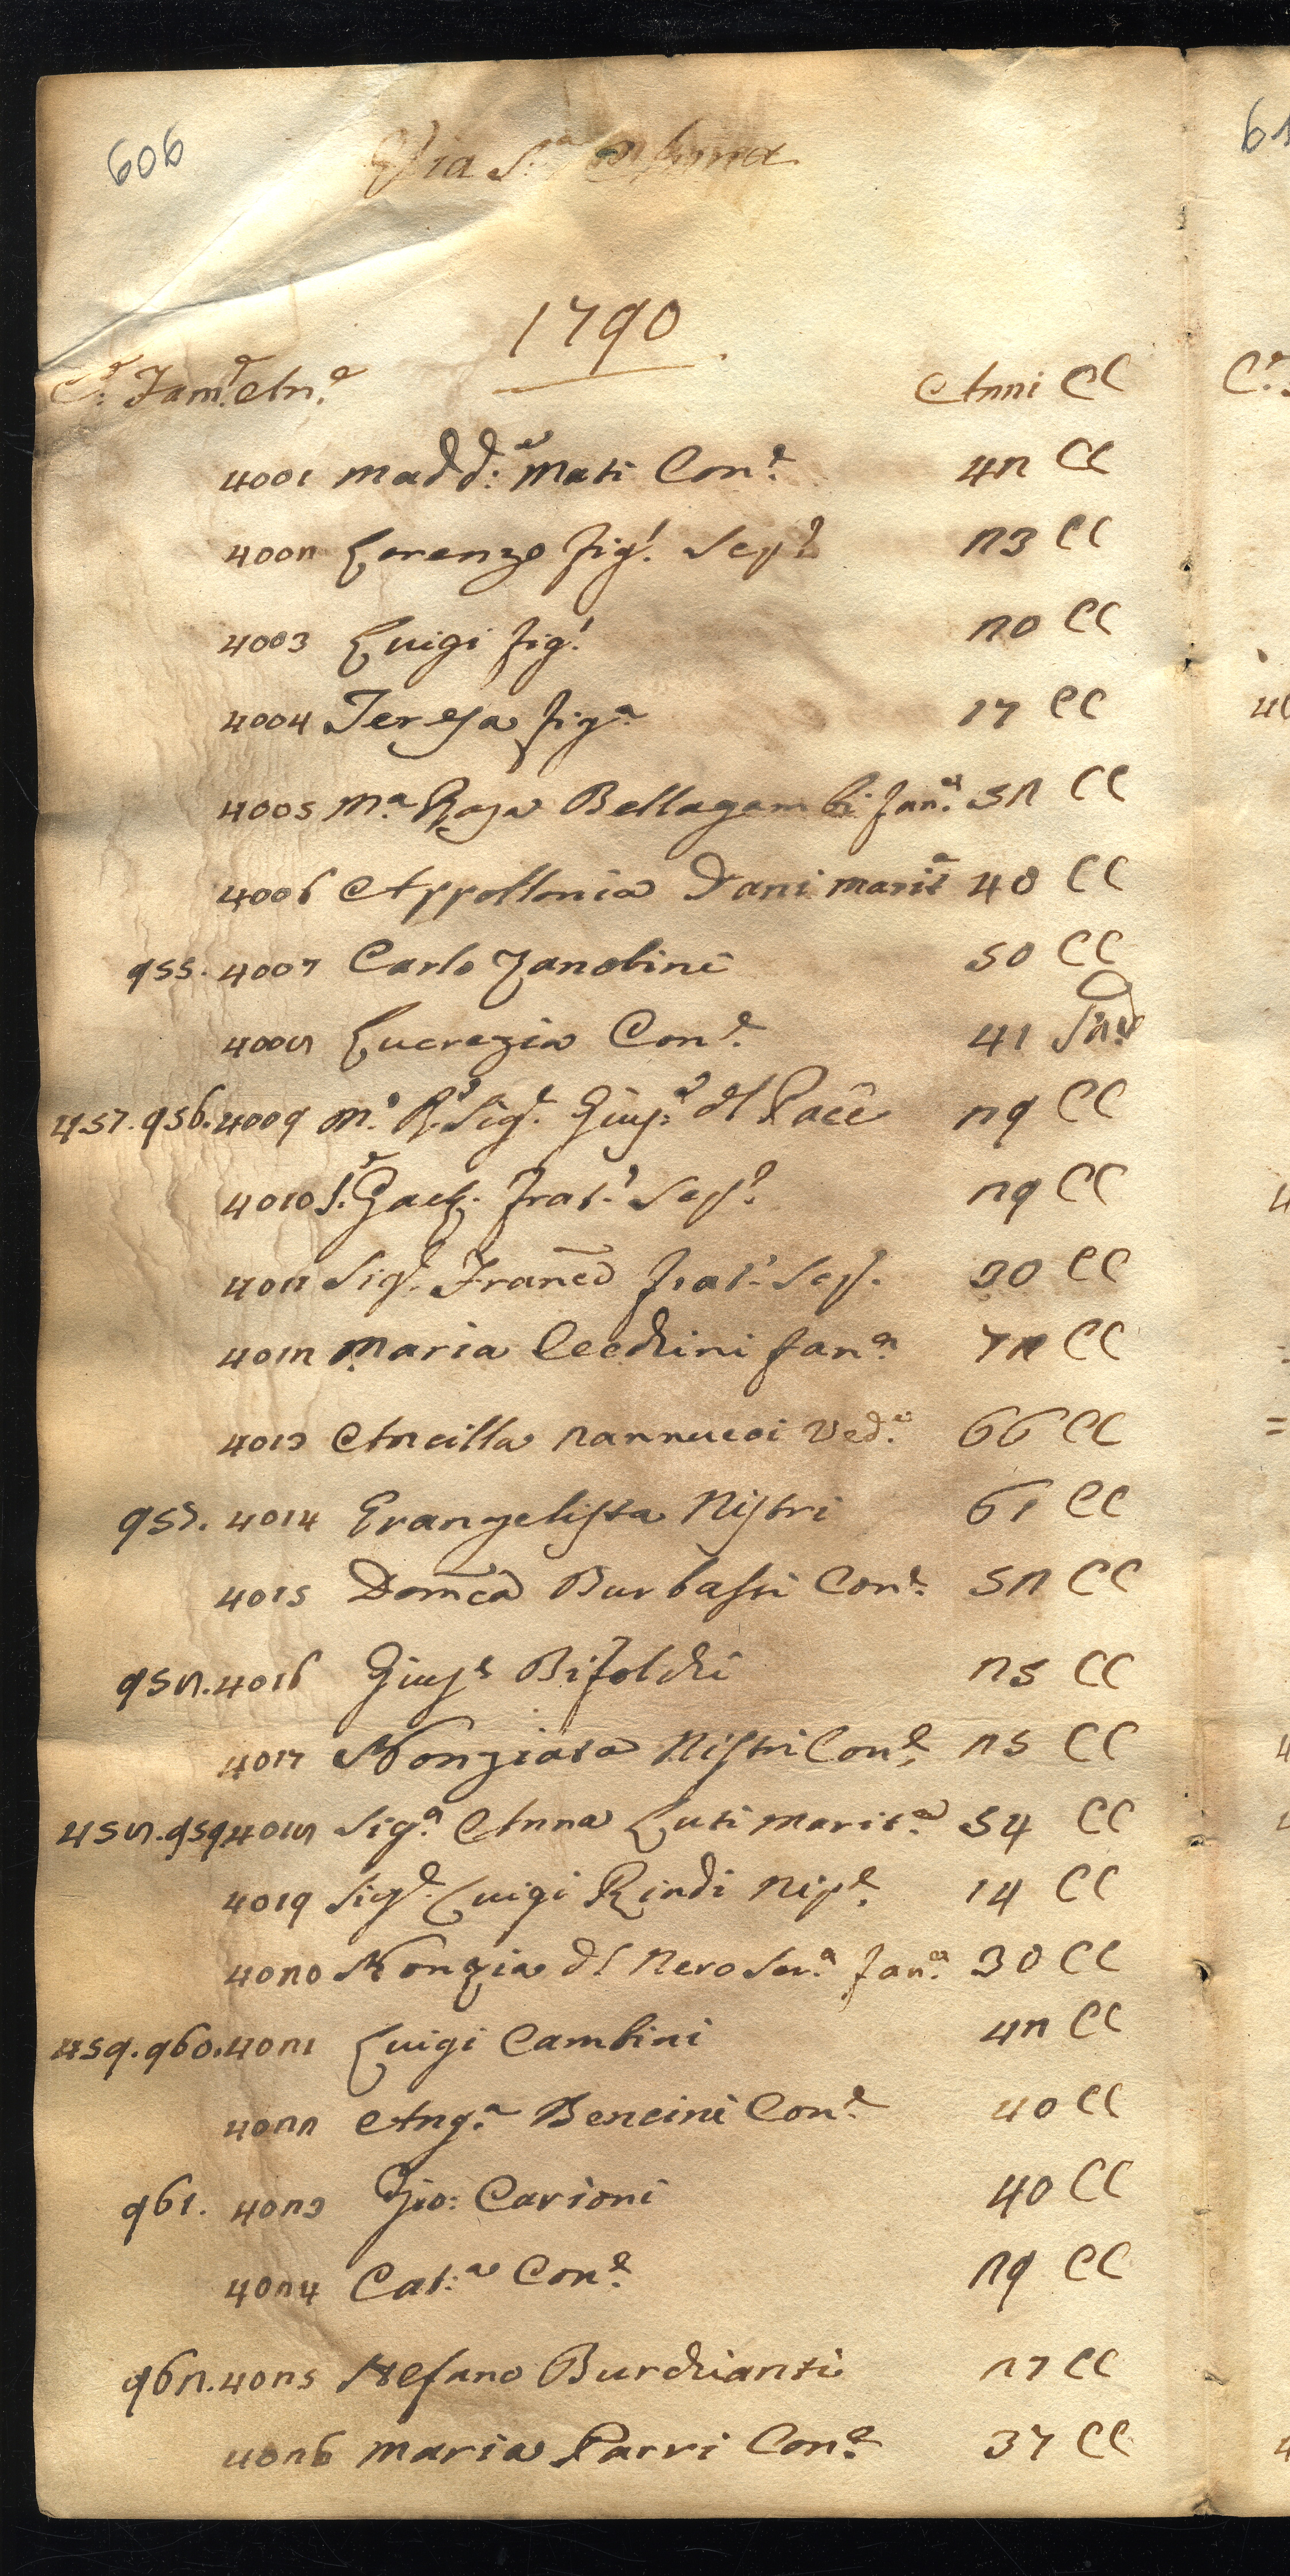 606
Via S.ª
1790
C.e Fam.e An.e Anni CC
4001 Madd.a Mati Con.e 42 CC
4002 Lorenzo fig.l Sep.e 23 CC
4003 Luigi fig.l 20 CC
4004 Teresa fig.a 17 CC
4005 M.a Rosa Bellagambi fan.a 52 CC
4006 Appollonia Dani marit.a 40 CC
955. 4007 Carlo Zanobini 50 CC
4008 Lucrezia Con.e 41
457. 956. 4009 M.o R. Sig.e Giusp.e dl Pace 29 CC
4010 S.r Gaet. Frat.o Sep.o 29 CC
4011 Sig.e Franc̃o frat.o Sep. 30 CC
4012 Maria Cecchini fan.a 72 CC
4013 Ancilla Nannucci Ved.a 66 CC
957. 4014 Evangelista Nistri 61 CC
4015 Dom̃ca Burbassi Con.e 52 CC
958. 4016 Giusp.e Bifolchi 25 CC
4017 Nonziata Nistri Con.e 25 CC
458. 959. 4018 Sig.a Anna Luti marit.a 54 CC
4019 Sig.e Luigi Rindi Nip.e 14 CC
4020 Nonzia dl Nero Ser.a fan.a 30 CC
459. 960. 4021 Luigi Cambini 42 CC
4022 Ang.a Bencini Con.e 40 CC
961. 4023 Gio: Carioni 40 CC
4024 Cat.a Con.e 29 CC
962. 4025 Stefano Burchianti 27 CC
4026 Maria Parri Con.e 37 CC